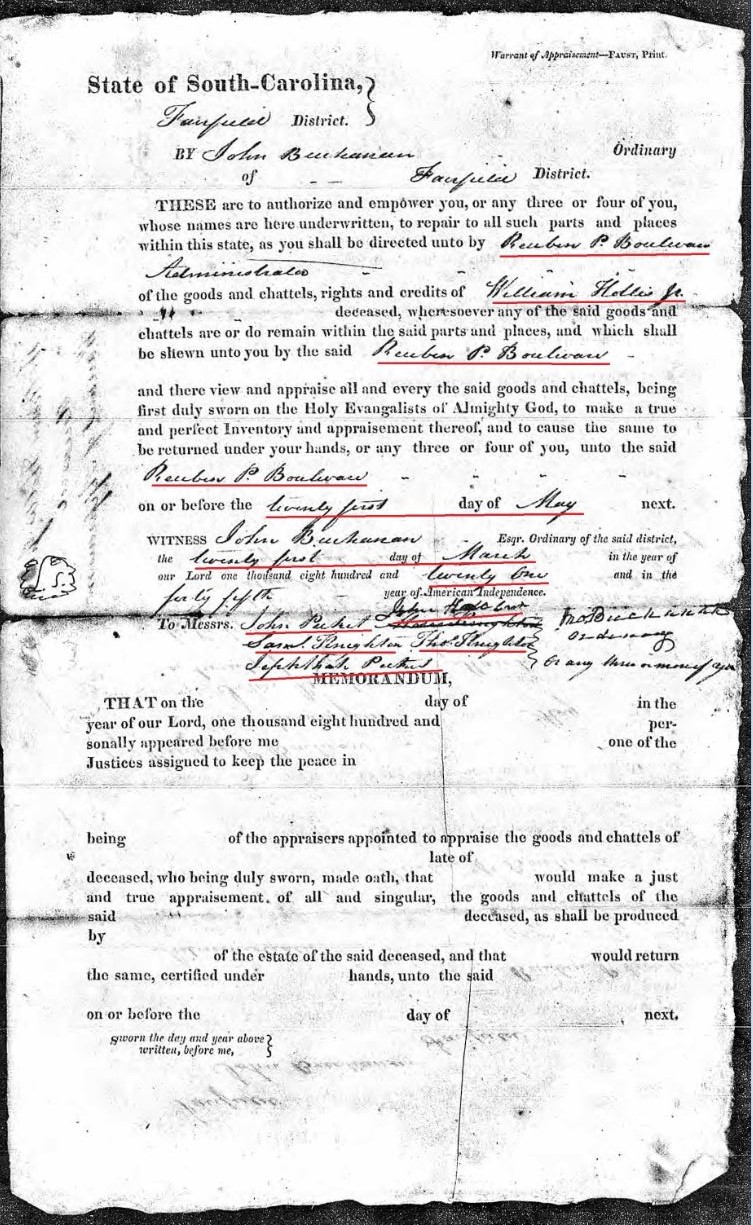 Warrant of Appraisement—FAUST, Print.
State of South-Carolina, }
Fairfield District. }
BY John Buchanan Ordinary
of Fairfield District.
THESE are to authorize and empower you, or any three or four of you,
whose names are here underwritten, to repair to all such parts and places
within this state, as you shall be directed unto by Reuben P. Boulware
Administrator
of the goods and chattels, rights and credits of William Hollis Jr.
deceased, wheresoever any of the said goods and
chattels are or do remain within the said parts and places, and which shall
be shewn unto you by the said Reuben P. Boulware
and there view and appraise all and every the said goods and chattels, being
first duly sworn on the Holy Evangalists of Almighty God, to make a true
and perfect Inventory and appraisement thereof, and to cause the same to
be returned under your hands, or any three or four of you, unto the said
Reuben P. Boulware
on or before the twenty first day of May next.
WITNESS John Buchanan Esqr. Ordinary of the said district,
the twenty first day of March in the year of
our Lord one thousand eight hundred and twenty One and in the
forty fifth year of American Independence.
To Messrs. John Picket John Jno. Buchanan
Saml. Knighton Thos. Knighton Ordinary
Jephthah Picket Or any three or more of you
MEMORANDUM,
THAT on the day of in the
year of our Lord, one thousand eight hundred and per-
sonally appeared before me one of the
Justices assigned to keep the peace in
being of the appraisers appointed to appraise the goods and chattels of
late of
deceased, who being duly sworn, made oath, that would make a just
and true appraisement of all and singular, the goods and chattels of the
said deceased, as shall be produced
by
of the estate of the said deceased, and that would return
the same, certified under hands, unto the said
on or before the day of next.
Sworn the day and year above }
written, before me, }